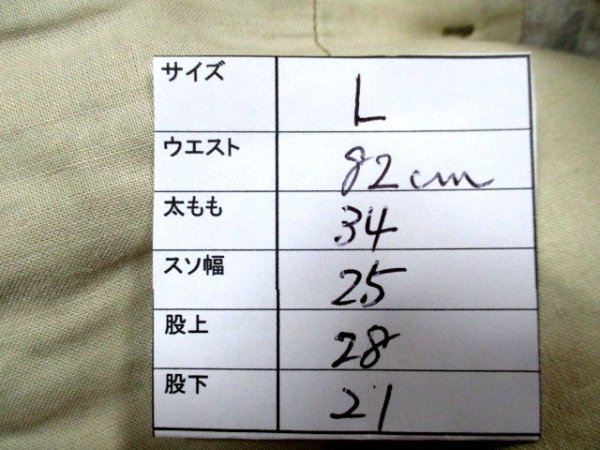 サイズ L
ウエスト 82cm
太もも 34
スソ幅 25
股上 28
股下 21